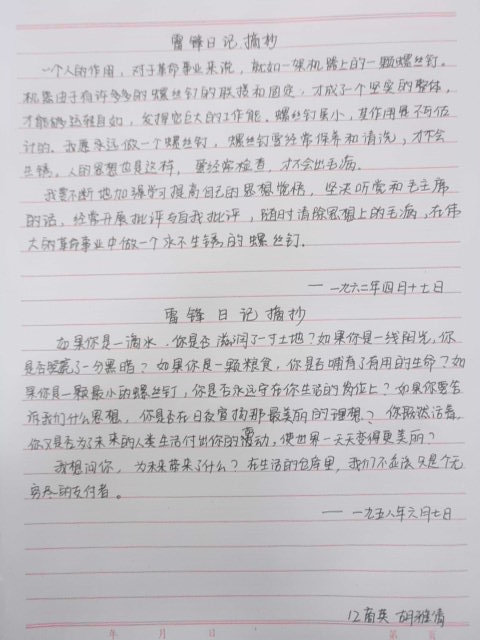 雷锋日记摘抄
一个人的作用，对于革命事业来说，就如一架机器上的一颗螺丝钉。
机器由于有许多多的螺丝钉的联接和固定，才成了个坚实的整体，
才能够运转自如，发挥它巨大的工作能。螺丝钉虽小，其作用是不可估
计的。我愿永远做一个螺丝钉，螺丝钉要经常保养和清洗，才不会
生锈。人的思想也是这样，要经常检查，才不会出毛病。
我要不断地加强学习提高自己的思想觉悟，坚决听党和毛主席
的话，经常开展批评与自我批评，随时清除思想上的毛病，在伟
大的革命事业中做一个永不生锈的螺丝钉。
——一九六二年四月十七日
雷锋日记摘抄
如果你是一滴水，你是否滋润了一寸土地？如果你是一线阳光，你
是否照亮了一分黑暗？如果你是一颗粮食，你是否哺育了有用的生命？如
果你是一颗最小的螺丝钉，你是否永远守在你生活的岗位上？如果你要告
诉我们什么思想，你是否在日夜宣扬那最美丽的理想？你既然活着，
你又是否为了未来的人类生活付出你的劳动，使世界一天天变得更美丽？
我想问你，为未来带来了什么？在生活的仓库里，我们不应该只是个无
穷尽的支付者。
——一九五八年六月七日
12商英 胡雅倩
年 月 日 第